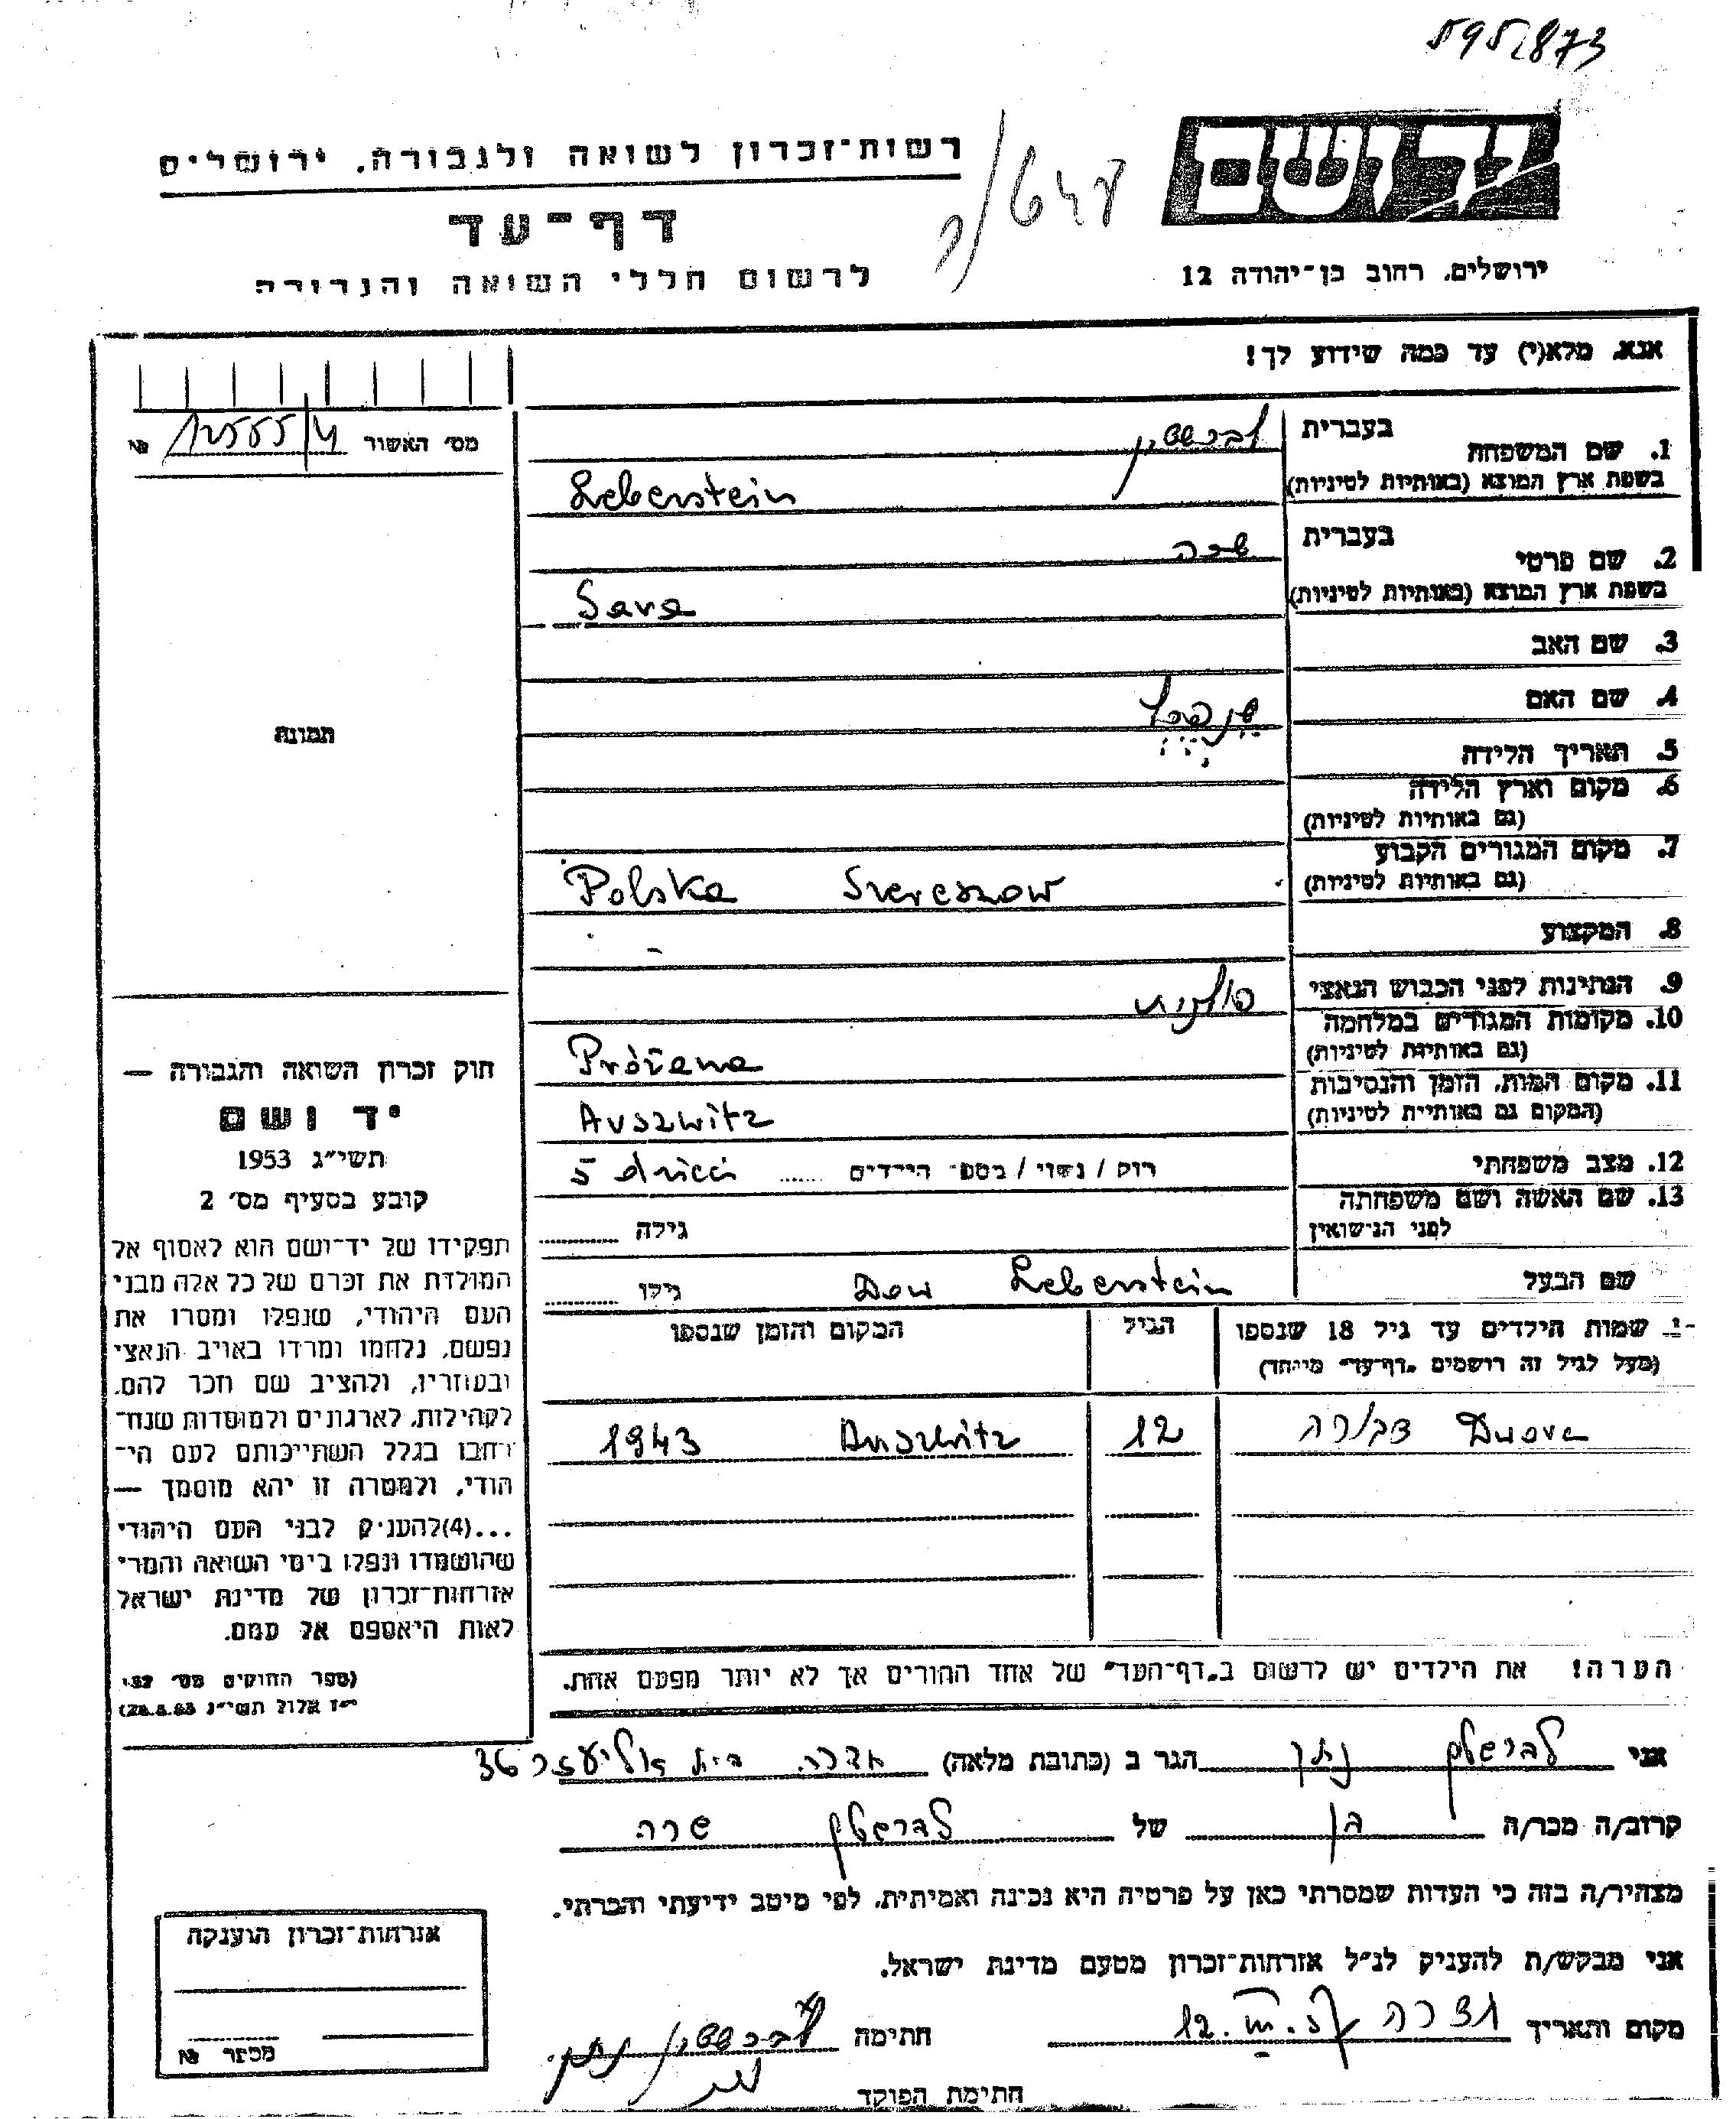 5952873
יד ושם
רשות־זכרון לשואה ולגבורה, ירושלים
דף־עד
לרשום חללי השואה והגבורה
ירושלים, רחוב בן־יהודה 12
אנא, מלא(י) עד כמה שידוע לך!
מס׳ האשור № 12555/4
1. שם המשפחה בעברית לברשטין
בשפת ארץ המוצא (באותיות לטיניות) Leberstein
2. שם פרטי בעברית שרה
בשפת ארץ המוצא (באותיות לטיניות) Sara
3. שם האב
4. שם האם
5. תאריך הלידה
6. מקום וארץ הלידה
(גם באותיות לטיניות)
7. מקום המגורים הקבוע
(גם באותיות לטיניות) Polska Szereszow
8. המקצוע –
9. הנתינות לפני הכבוש הנאצי פולנית
10. מקומות המגורים במלחמה
(גם באותיות לטיניות) Prożana
11. מקום המות, הזמן והנסיבות
(המקום גם באותיות לטיניות) Auszwitz
12. מצב משפחתי רוק / נשוי / מספ׳ הילדים ...... 5 dzieci
13. שם האשה ושם משפחתה
לפני הנישואין גילה ..........
שם הבעל Dow Leberstein גילו ..........
שמות הילדים עד גיל 18 שנספו הגיל המקום והזמן שנספו
(מעל לגיל זה רושמים „דף־עד” מיוחד)
Dwora דבורה 12 Auszwitz 1943
תמונה
חוק זכרון השואה והגבורה —
יד ושם
תשי״ג 1953
קובע בסעיף מס׳ 2
תפקידו של יד־ושם הוא לאסוף אל
המולדת את זכרם של כל אלה מבני
העם היהודי, שנפלו ומסרו את
נפשם, נלחמו ומרדו באויב הנאצי
ובעוזריו, ולהציב שם וזכר להם,
לקהילות, לארגונים ולמוסדות שנח־
רבו בגלל השתייכותם לעם הי־
הודי, ולמטרה זו יהא מוסמך —
...(4)להעניק לבני העם היהודי
שהושמדו ונפלו בימי השואה והמרי
אזרחות־זכרון של מדינת ישראל
לאות היאספם אל עמם.
(ספר החוקים מס׳ 132,
י״ז אלול תשי״ג 28.8.53)
הערה! את הילדים יש לרשום ב„דף־העד” של אחד ההורים אך לא יותר מפעם אחת.
אני לברשטין נתן הגר ב (כתובת מלאה) חדרה בית אליעזר 36
קרוב/ה מכר/ה בן של לברשטין שרה
מצהיר/ה בזה כי העדות שמסרתי כאן על פרטיה היא נכונה ואמיתית, לפי מיטב ידיעתי והכרתי.
אני מבקש/ת להעניק לנ״ל אזרחות־זכרון מטעם מדינת ישראל.
מקום ותאריך חדרה 12.III.57 חתימה לברשטין נתן
חתימת הפוקד
אזרחות־זכרון הוענקה
מכתב №